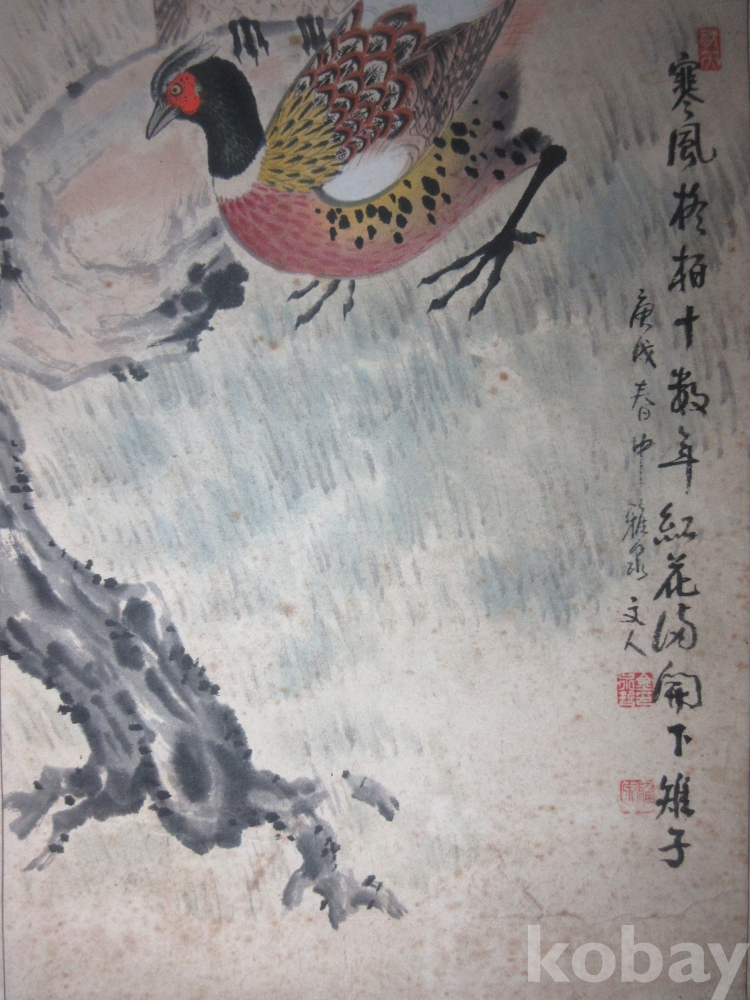 寒風松柏十數年紅花満開下雉子
庚戌春中 泉文人
kobay